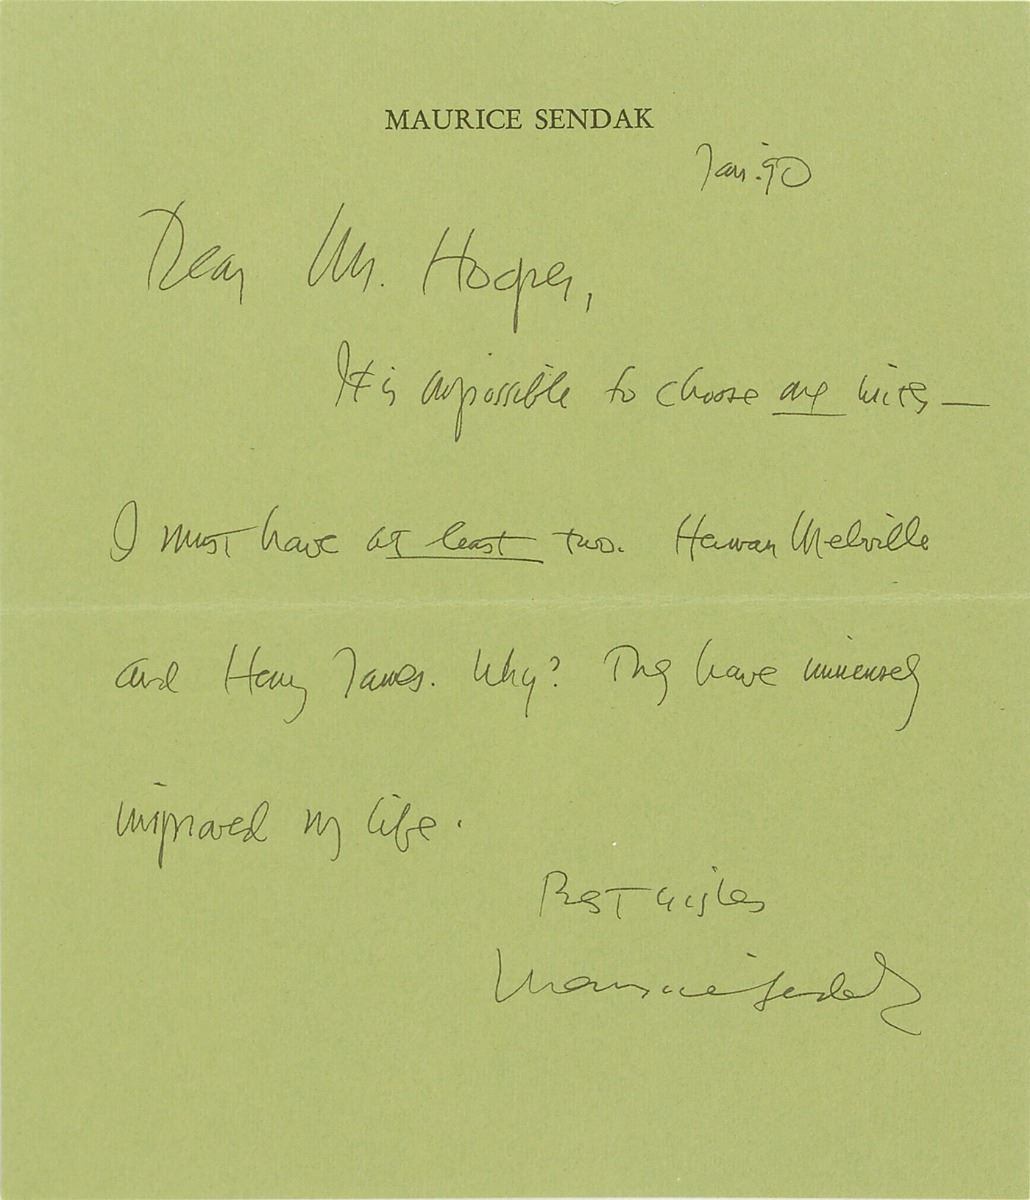 MAURICE SENDAK
Jan. 90
Dear Mr. Hooper,
It is impossible to choose one writer —
I must have at least two. Herman Melville
and Henry James. Why? They have immensely
improved my life.
Best wishes
Maurice Sendak